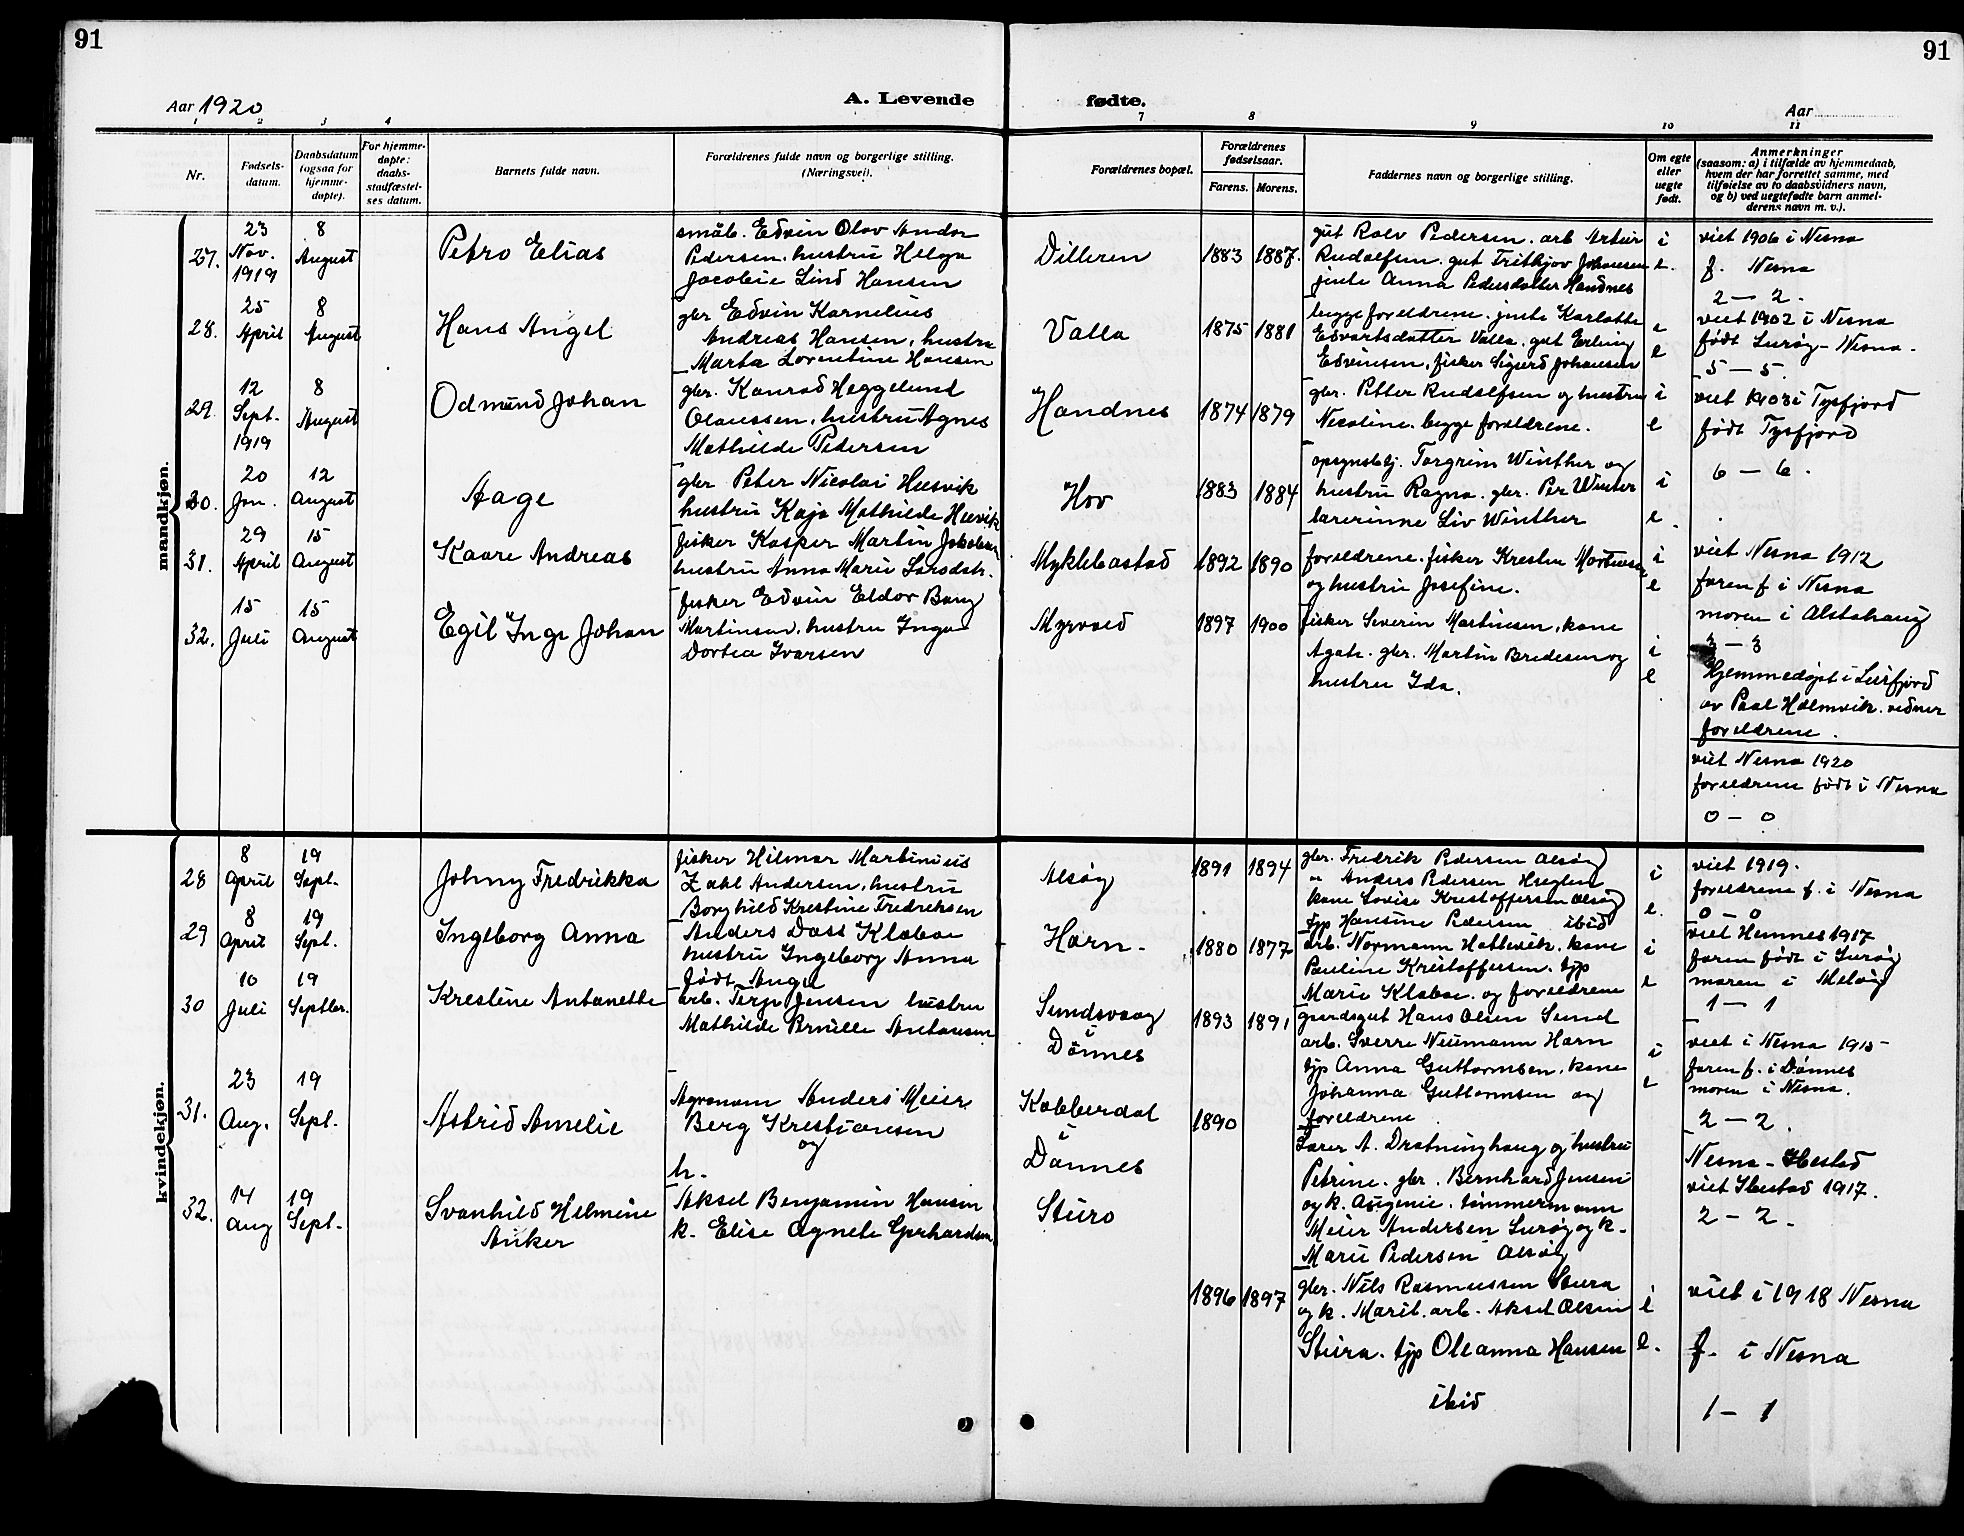 91
91
Aar 1920
A. Levende
fødte.
Aar
1 2 3 4 7 8 9 10 11
Nr.
Fødsels-
datum.
Daabsdatum
(ogsaa for
hjemme-
døpte).
For hjemme-
døpte:
daabs-
stadfæstel-
ses datum.
Barnets fulde navn.
Forældrenes fulde navn og borgerlige stilling.
(Næringsvei).
Forældrenes bopæl.
Forældrenes
fødselsaar.
Farens. Morens.
Faddernes navn og borgerlige stilling.
Om egte
eller
uegte
født.
Anmerkninger
(saasom: a) i tilfælde av hjemmedaab,
hvem der har forrettet samme, med
tilføielse av to daabsvidners navn,
og b) ved uegtefødte barn anmel-
derens navn m. v.).
mandkjøn.
27.
23
Nov.
1919
8
August
Petro Elias
småb. Edvin Olav Andor
Pedersen, hustru Helga
Jacobie Lind Hansen
Dilleren
1883 1887.
gut Rolv Pedersen. arb Artur
Rudolfsen. gut Frithjov Johansen
jente Anna Pedersdatter Handnes
i
e.
viet 1906 i Nesna
f. Nesna
2 — 2.
28.
25
April
8
August
Hans Angel
gbr Edvin Kornelius
Andreas Hansen, hustru
Marta Lorentine Hansen
Valla
1875 1881
begge foreldrene. jente Karlotte
Edvartsdatter Valla. gut Erling
Edvinsen, fisker Sigurd Johansen
e
e
viet 1902 i Nesna
født Lurøy - Nesna.
5 — 5
29.
12
Sept.
1919
8
August
Odmund Johan
gbr. Konrad Heggelund
Olaussen, hustru Agnes
Mathilde Pedersen
Handnes
1874 1879
gbr. Petter Rudolfsen og hustru
Nicoline. begge foreldrene.
i
e
viet 1903 i Tysfjord
født Tysfjord
6 — 6.
30.
20
Jan.
12
August
Aage
gbr Peter Nicolai Husvik
hustru Kaja Mathilde Husvik
Hov
1883 1884
opsynsbtj. Torgrim Winther og
hustru Ragna. gbr. Per Winter
lærerinne Liv Winther
i
e.
31.
29
April
15
August
Kaare Andreas
fisker Kasper Martin Jakobsen
hustru Anna Marie Larsdatr.
Myklebostad
1892 1890
foreldrene. fisker Kresten Mortensen
og hustru Josefine.
i
e
viet Nesna 1912
faren f i Nesna
moren i Alstahaug
3 — 3
32.
15
Juli
15
August
Egil Inge Johan
fisker Edvin Eldor Berg
Martinsen, hustru Inga
Dortea Ivarsen
Myrvold
1897 1900
fisker Severin Martinsen, kone
Agate. gbr. Martin Bredesen og
hustru Ida.
i
e
Hjemmedøpt i Leirfjord
av Paal Holmvik. vidner
foreldrene.
viet Nesna 1920
foreldrene født i Nesna
0 — 0
kvindekjøn.
28
8
April
19
Sept.
Johny Fredrikka
fisker Hilmar Martinius
Zahl Andersen, hustru
Borghild Kristine Fredriksen
Alsøy
1891 1894
gbr. Fredrik Pedersen Alsøy
" Anders Pedersen
kone Lovise Kristoffersen Alsøy
typ Hansine Pedersen ibid
i
e.
viet 1919.
foreldrene f. i Nesna
0 — 0
29
8
April
19
Sept.
Ingeborg Anna
Anders Dass Klæboe
hustru Ingeborg Anna
født Angel
Horn.
1880 1877
arb. Normann Hattevik. kone
Pauline Kristoffersen. typ
Marie Klæboe. og foreldrene
i
e
viet Hemnes 1917
faren født i Lurøy
moren i Meløy
1 — 1
30
10
Juli
19
Septbr.
Krestine Antonette
arb. Terje Jensen hustru
Mathilde Pernille Antonsen
Sundsvaag
i
Dønnes
1893 1891
gaardsgut Hans Olsen Sund
arb. Sverre Neumann Horn
typ Anna Guttormsen. kone
Johanna Guttormsen og
foreldrene
i
e
viet i Nesna 1915
faren f. i Dønnes
moren i Nesna.
2 — 2.
31.
23
Aug.
19
Sept.
Astrid Amelie
Agronom Anders Meier
Berg Krestiansen
og
h.
Kobberdal
i
Dønnes
1890
Lærer A. Dratninghaug og hustru
Petrine. gbr. Bernhard Jensen
og k. Augenie. tømmermann
Meier Andersen Lurøy og k.
Marie Pedersen Alsøy
Nesna - Ibestad
viet Ibestad 1917.
2 — 2.
32.
14
Aug
19
Sept.
Svanhild Helmine
Anker
Aksel Benjamin Hansen
k. Elise Agnete Gerhardsen
Stura
1896 1897
gbr. Nils Rasmussen Stura
og k. Marit. arb. Aksel Olsen
Stura. typ Oleanna Hansen
ibid
i
e.
viet i 1918 Nesna
f. i Nesna
1 — 1